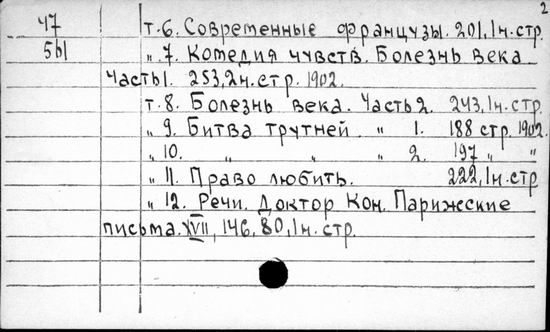 2
47 т.6. Современные французы. 201,1н.стр.
561 „ 7. Комедия чувств. Болезнь века
Часть1. 253,2н.стр. 1902.
т.8. Болезнь века. Часть2. 243,1н.стр.
„ 9. Битва трутней „ 1. 188 стр. 1902.
„ 10. „ „ „ 2. 197 „ „
„ 11. Право любить. 222,1н.стр
„ 12. Речи. Доктор Кон. Парижские
письма. XVII, 146, 80, 1н.стр.